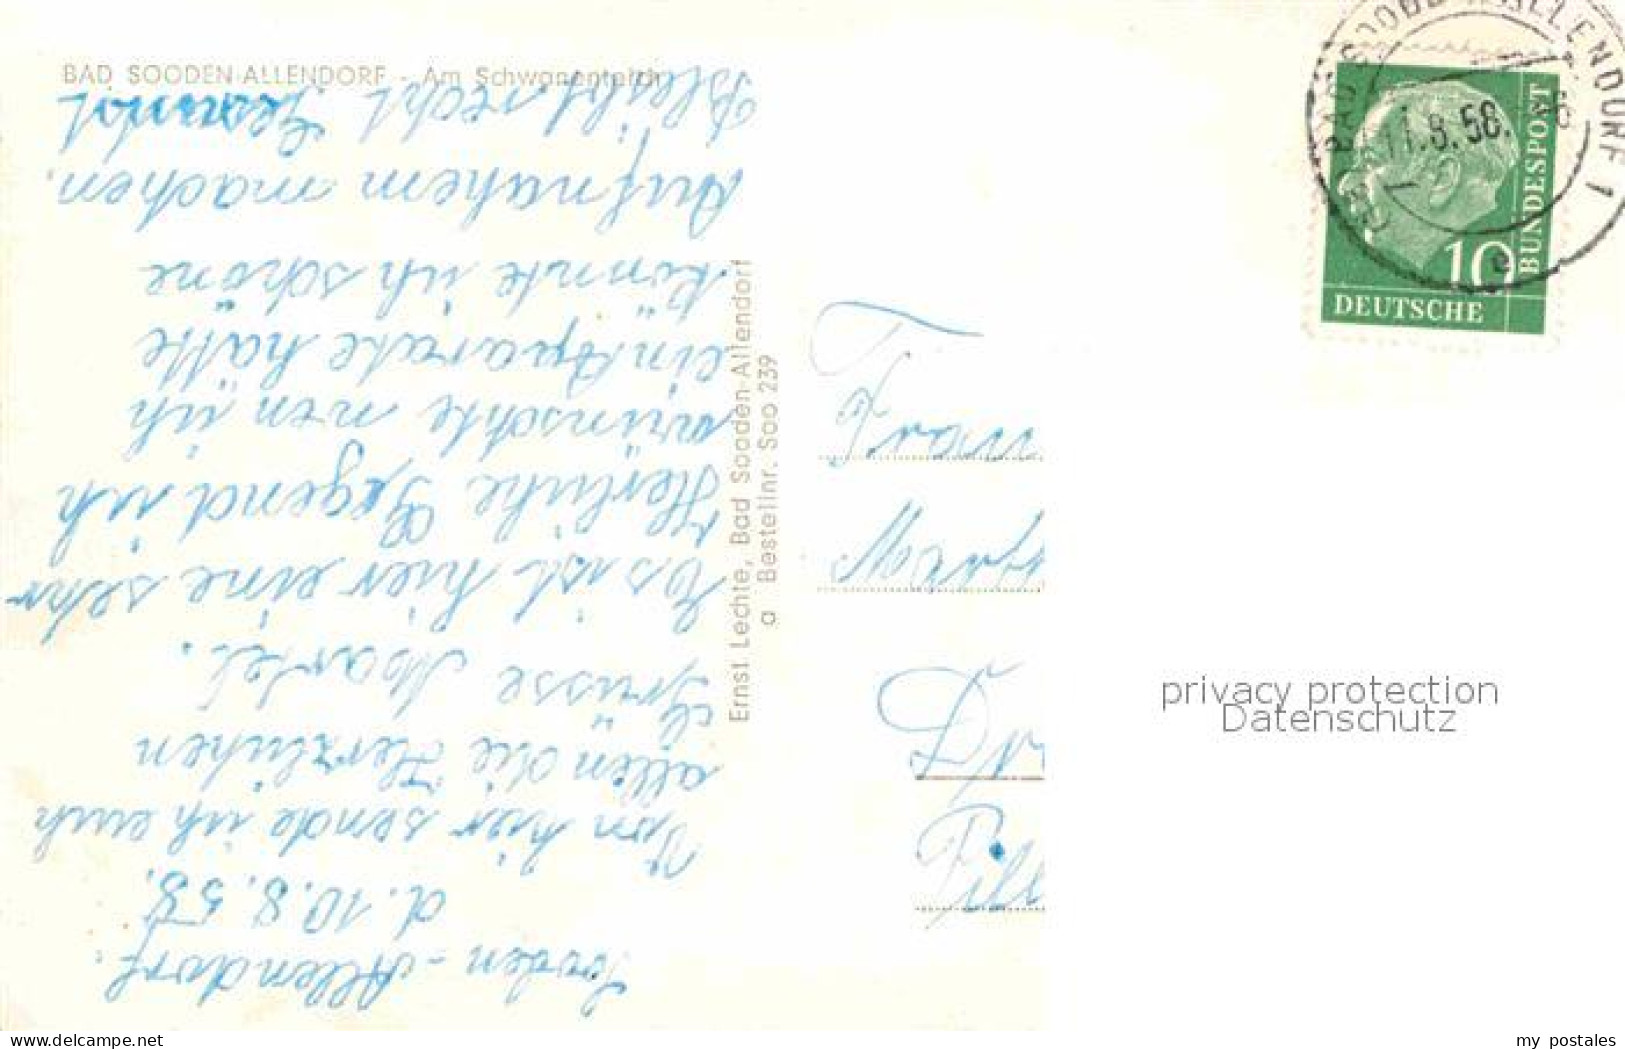 BAD SOODEN-ALLENDORF - Am Schwanenteich
Sooden-Allendorf.
d. 10.8.58.
Von hier sende ich euch
allen die Herzlichen
Grüsse Martel.
Es ist hier eine sehr
Herliche Gegend ich
wünschte wen ich
ein Aparate hätte
könnte ich schöne
Aufnahem machen.
Bleibt recht Gesund
Ernst Lechte, Bad Sooden-Allendorf
a Bestellnr. Soo 239
BAD SOODEN-ALLENDORF 1
11.8.58.
10
DEUTSCHE
BUNDESPOST
privacy protection
Datenschutz
www.delcampe.net
my_postales